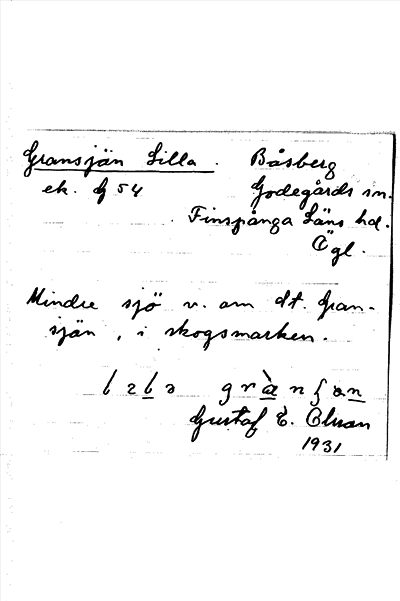 Gransjän Lilla. Båsberg
ek. G 54 Godegårds sn.
Finspånga Läns hd.
Ögl.
Mindre sjö v. om dt. Gran-
sjän, i skogsmarken.
Gustaf E. Olsson
1931